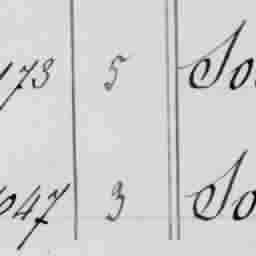 173 5 So
047 3 So